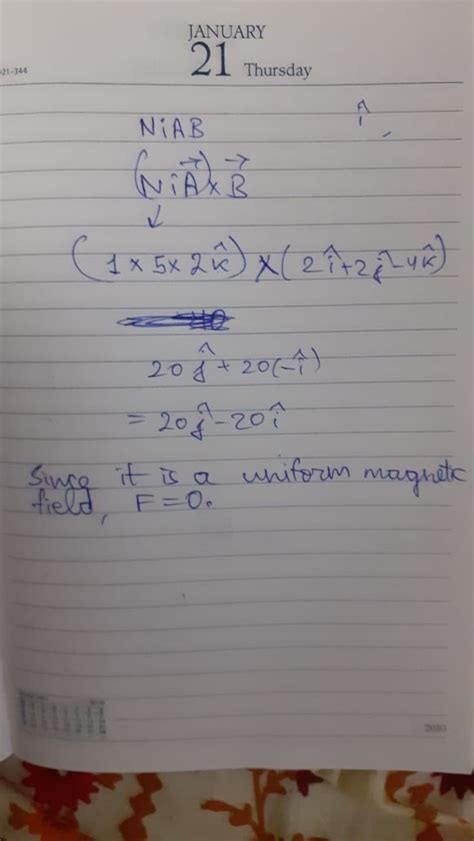 JANUARY
21 Thursday
021-344
î
NiAB
(NiA⃗)×B⃗
↓
(1×5×2k̂)×(2î+2ĵ-4k̂)
20ĵ+20(-î)
=20ĵ-20î
Since it is a uniform magnetic
field, F=0.